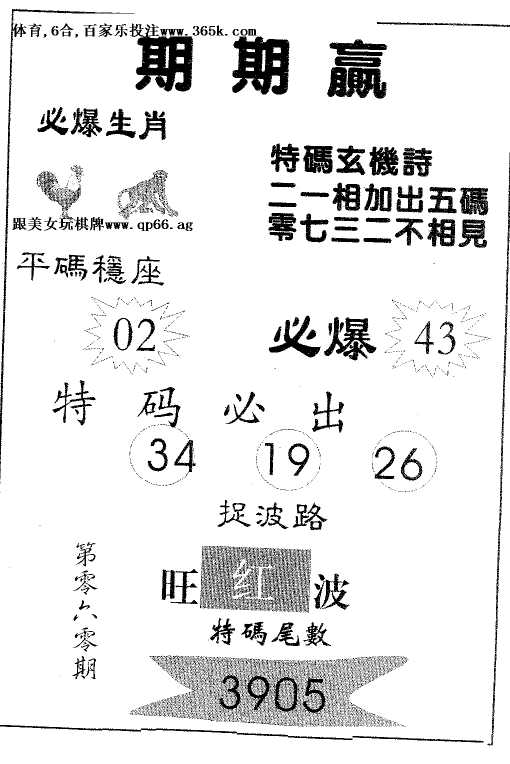 体育,6合,百家乐投注www.365k.com
期期贏
必爆生肖
特碼玄機詩
二一相加出五碼
零七三二不相見
跟美女玩棋牌www.qp66.ag
平碼穩座
02
必爆 43
特码必出
34 19 26
捉波路
第零六零期
旺红波
特碼尾數
3905